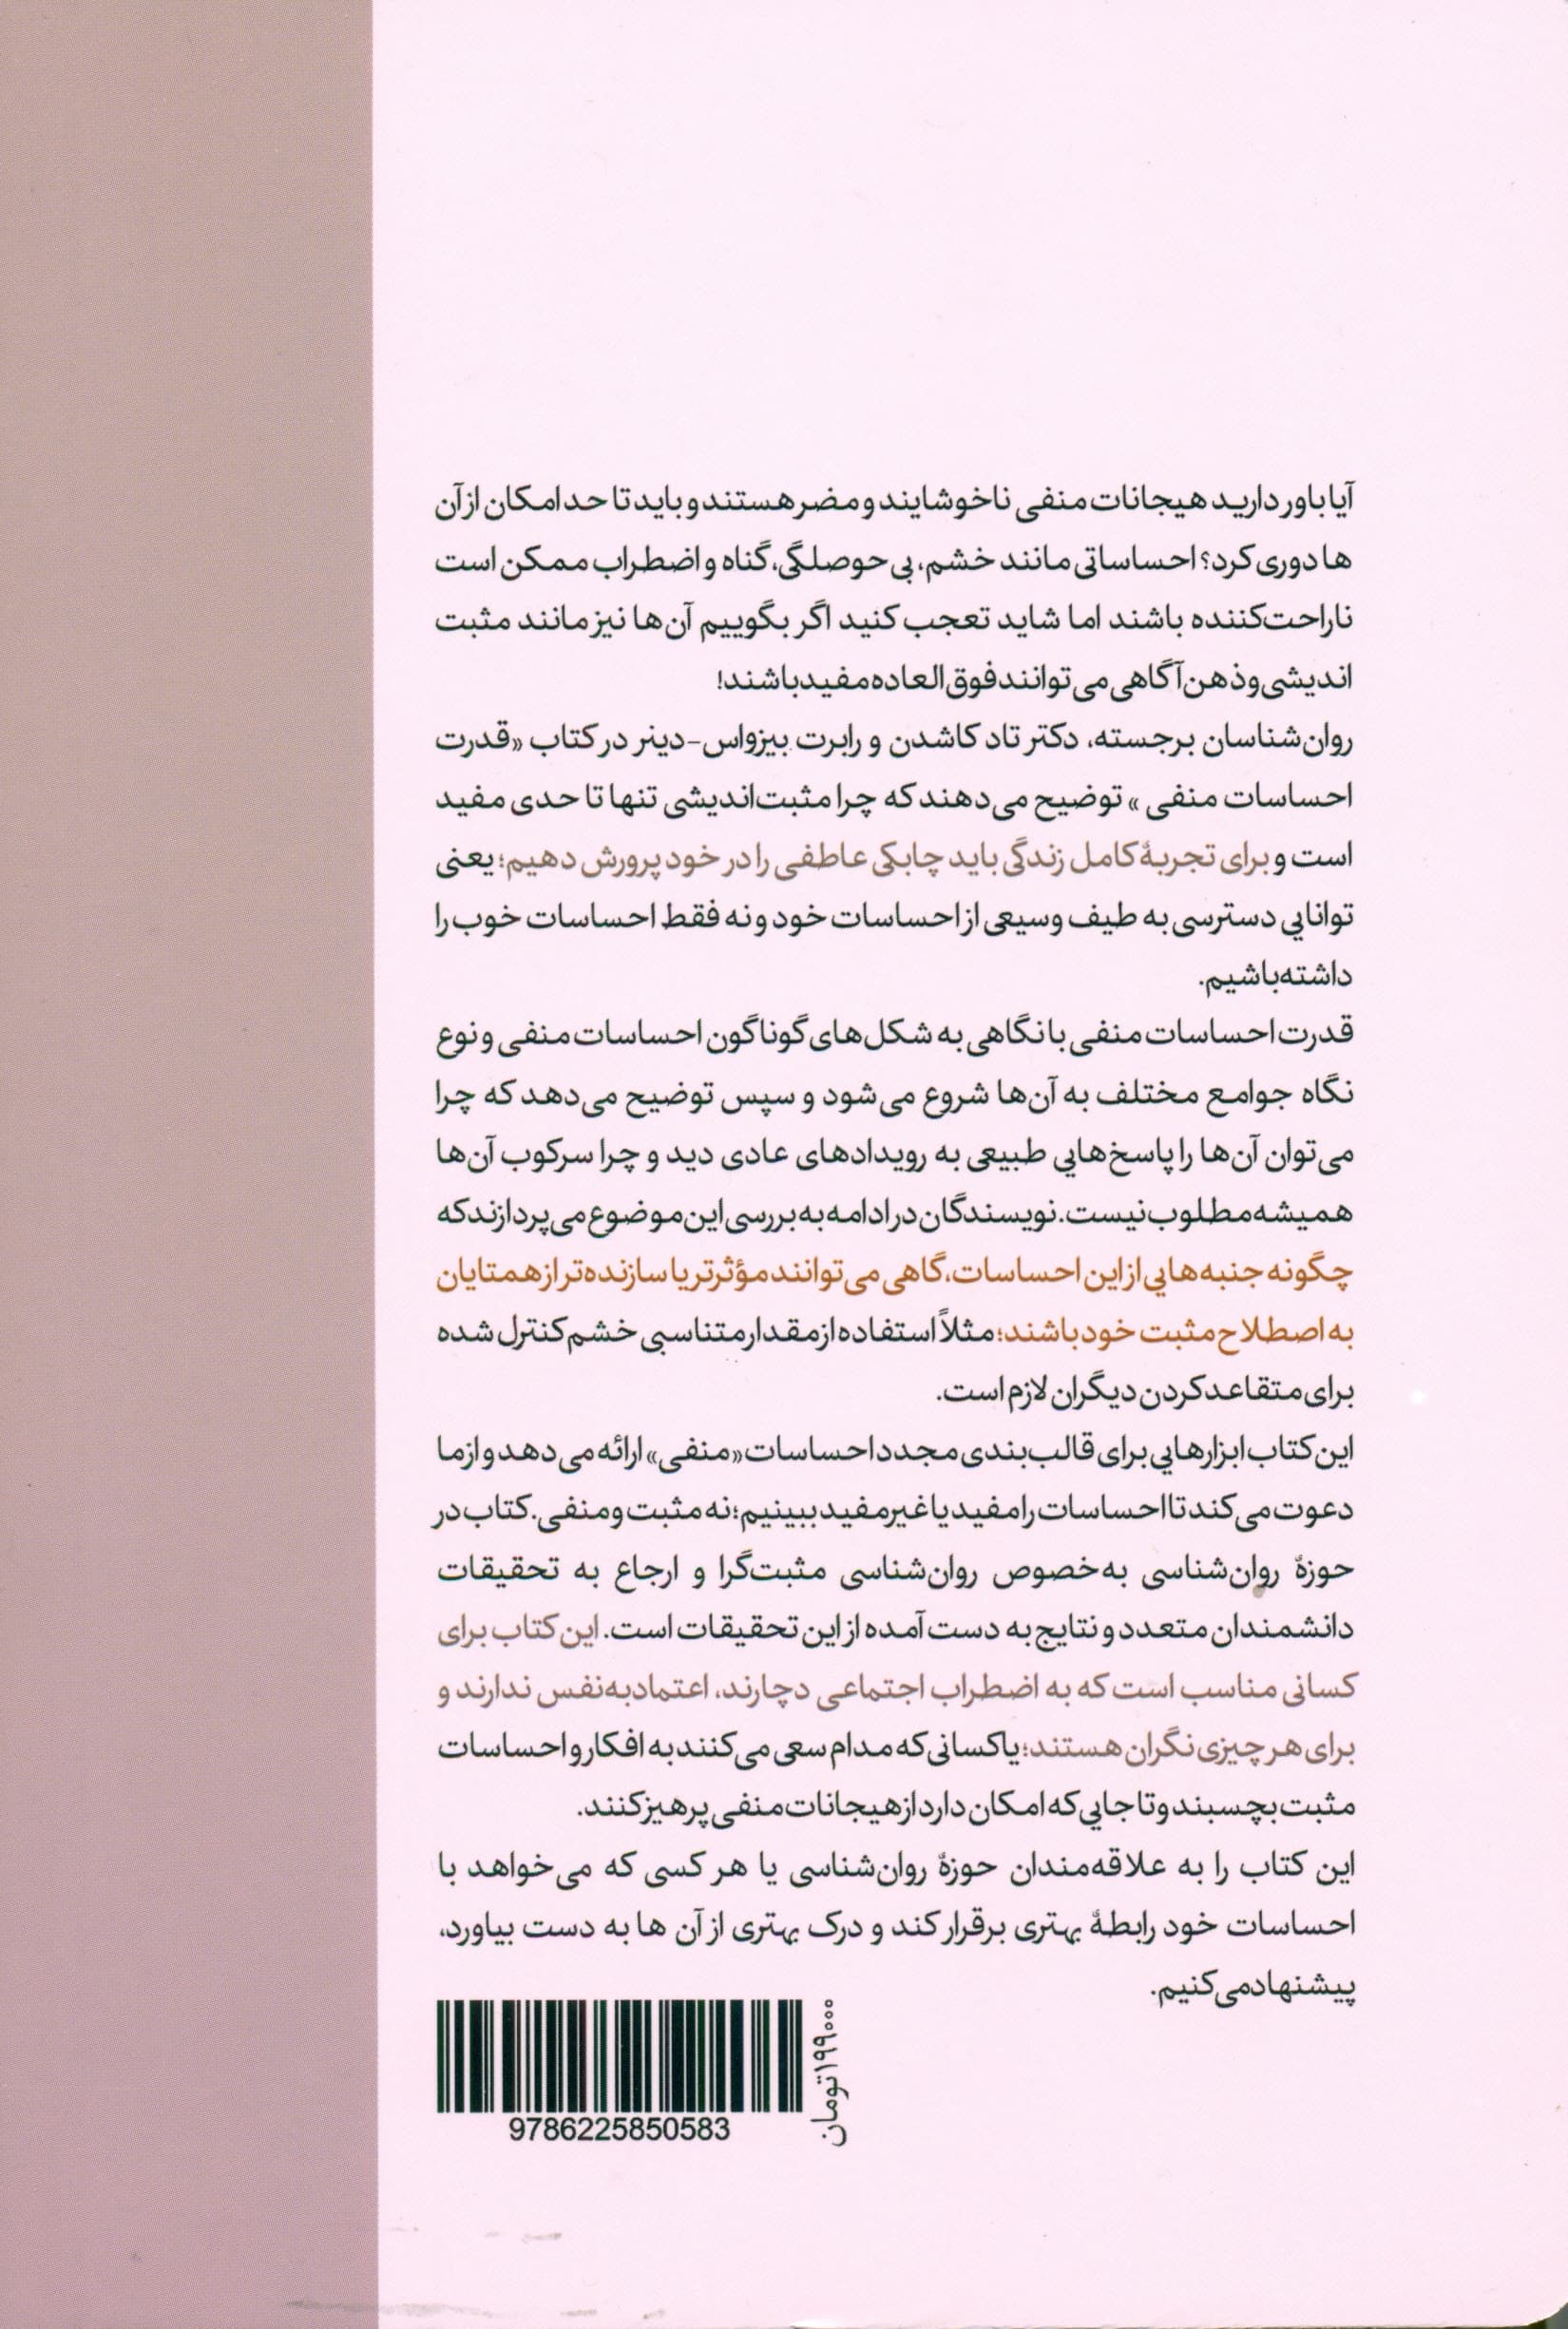 آیا باور دارید هیجانات منفی ناخوشایند و مضر هستند و باید تا حد امکان از آن
ها دوری کرد؟ احساساتی مانند خشم، بی حوصلگی، گناه و اضطراب ممکن است
ناراحت‌کننده باشند اما شاید تعجب کنید اگر بگوییم آن‌ها نیز مانند مثبت
اندیشی و ذهن‌آگاهی می‌توانند فوق العاده مفید باشند!
روان‌شناسان برجسته، دکتر تاد کاشدن و رابرت بیزواس-دینر در کتاب «قدرت
احساسات منفی» توضیح می‌دهند که چرا مثبت‌اندیشی تنها تا حدی مفید
است و برای تجربۀ کامل زندگی باید چابکی عاطفی را در خود پرورش دهیم؛ یعنی
توانایی دسترسی به طیف وسیعی از احساسات خود و نه فقط احساسات خوب را
داشته باشیم.
قدرت احساسات منفی با نگاهی به شکل‌های گوناگون احساسات منفی و نوع
نگاه جوامع مختلف به آن‌ها شروع می‌شود و سپس توضیح می‌دهد که چرا
می‌توان آن‌ها را پاسخ‌هایی طبیعی به رویدادهای عادی دید و چرا سرکوب آن‌ها
همیشه مطلوب نیست. نویسندگان در ادامه به بررسی این موضوع می‌پردازند که
چگونه جنبه‌هایی از این احساسات، گاهی می‌توانند مؤثرتر یا سازنده‌تر از همتایان
به اصطلاح مثبت خود باشند؛ مثلاً استفاده از مقدار متناسبی خشم کنترل شده
برای متقاعد کردن دیگران لازم است.
این کتاب ابزارهایی برای قالب‌بندی مجدد احساسات «منفی» ارائه می‌دهد و از ما
دعوت می‌کند تا احساسات را مفید یا غیر مفید ببینیم؛ نه مثبت و منفی. کتاب در
حوزۀ روان‌شناسی به‌خصوص روان‌شناسی مثبت‌گرا و ارجاع به تحقیقات
دانشمندان متعدد و نتایج به دست آمده از این تحقیقات است. این کتاب برای
کسانی مناسب است که به اضطراب اجتماعی دچارند، اعتمادبه‌نفس ندارند و
برای هر چیزی نگران هستند؛ یا کسانی که مدام سعی می‌کنند به افکار و احساسات
مثبت بچسبند و تا جایی که امکان دارد از هیجانات منفی پرهیز کنند.
این کتاب را به علاقه‌مندان حوزۀ روان‌شناسی یا هر کسی که می‌خواهد با
احساسات خود رابطۀ بهتری برقرار کند و درک بهتری از آن ها به دست بیاورد،
پیشنهاد می‌کنیم.
۱۹۹۰۰۰ تومان
9786225850583